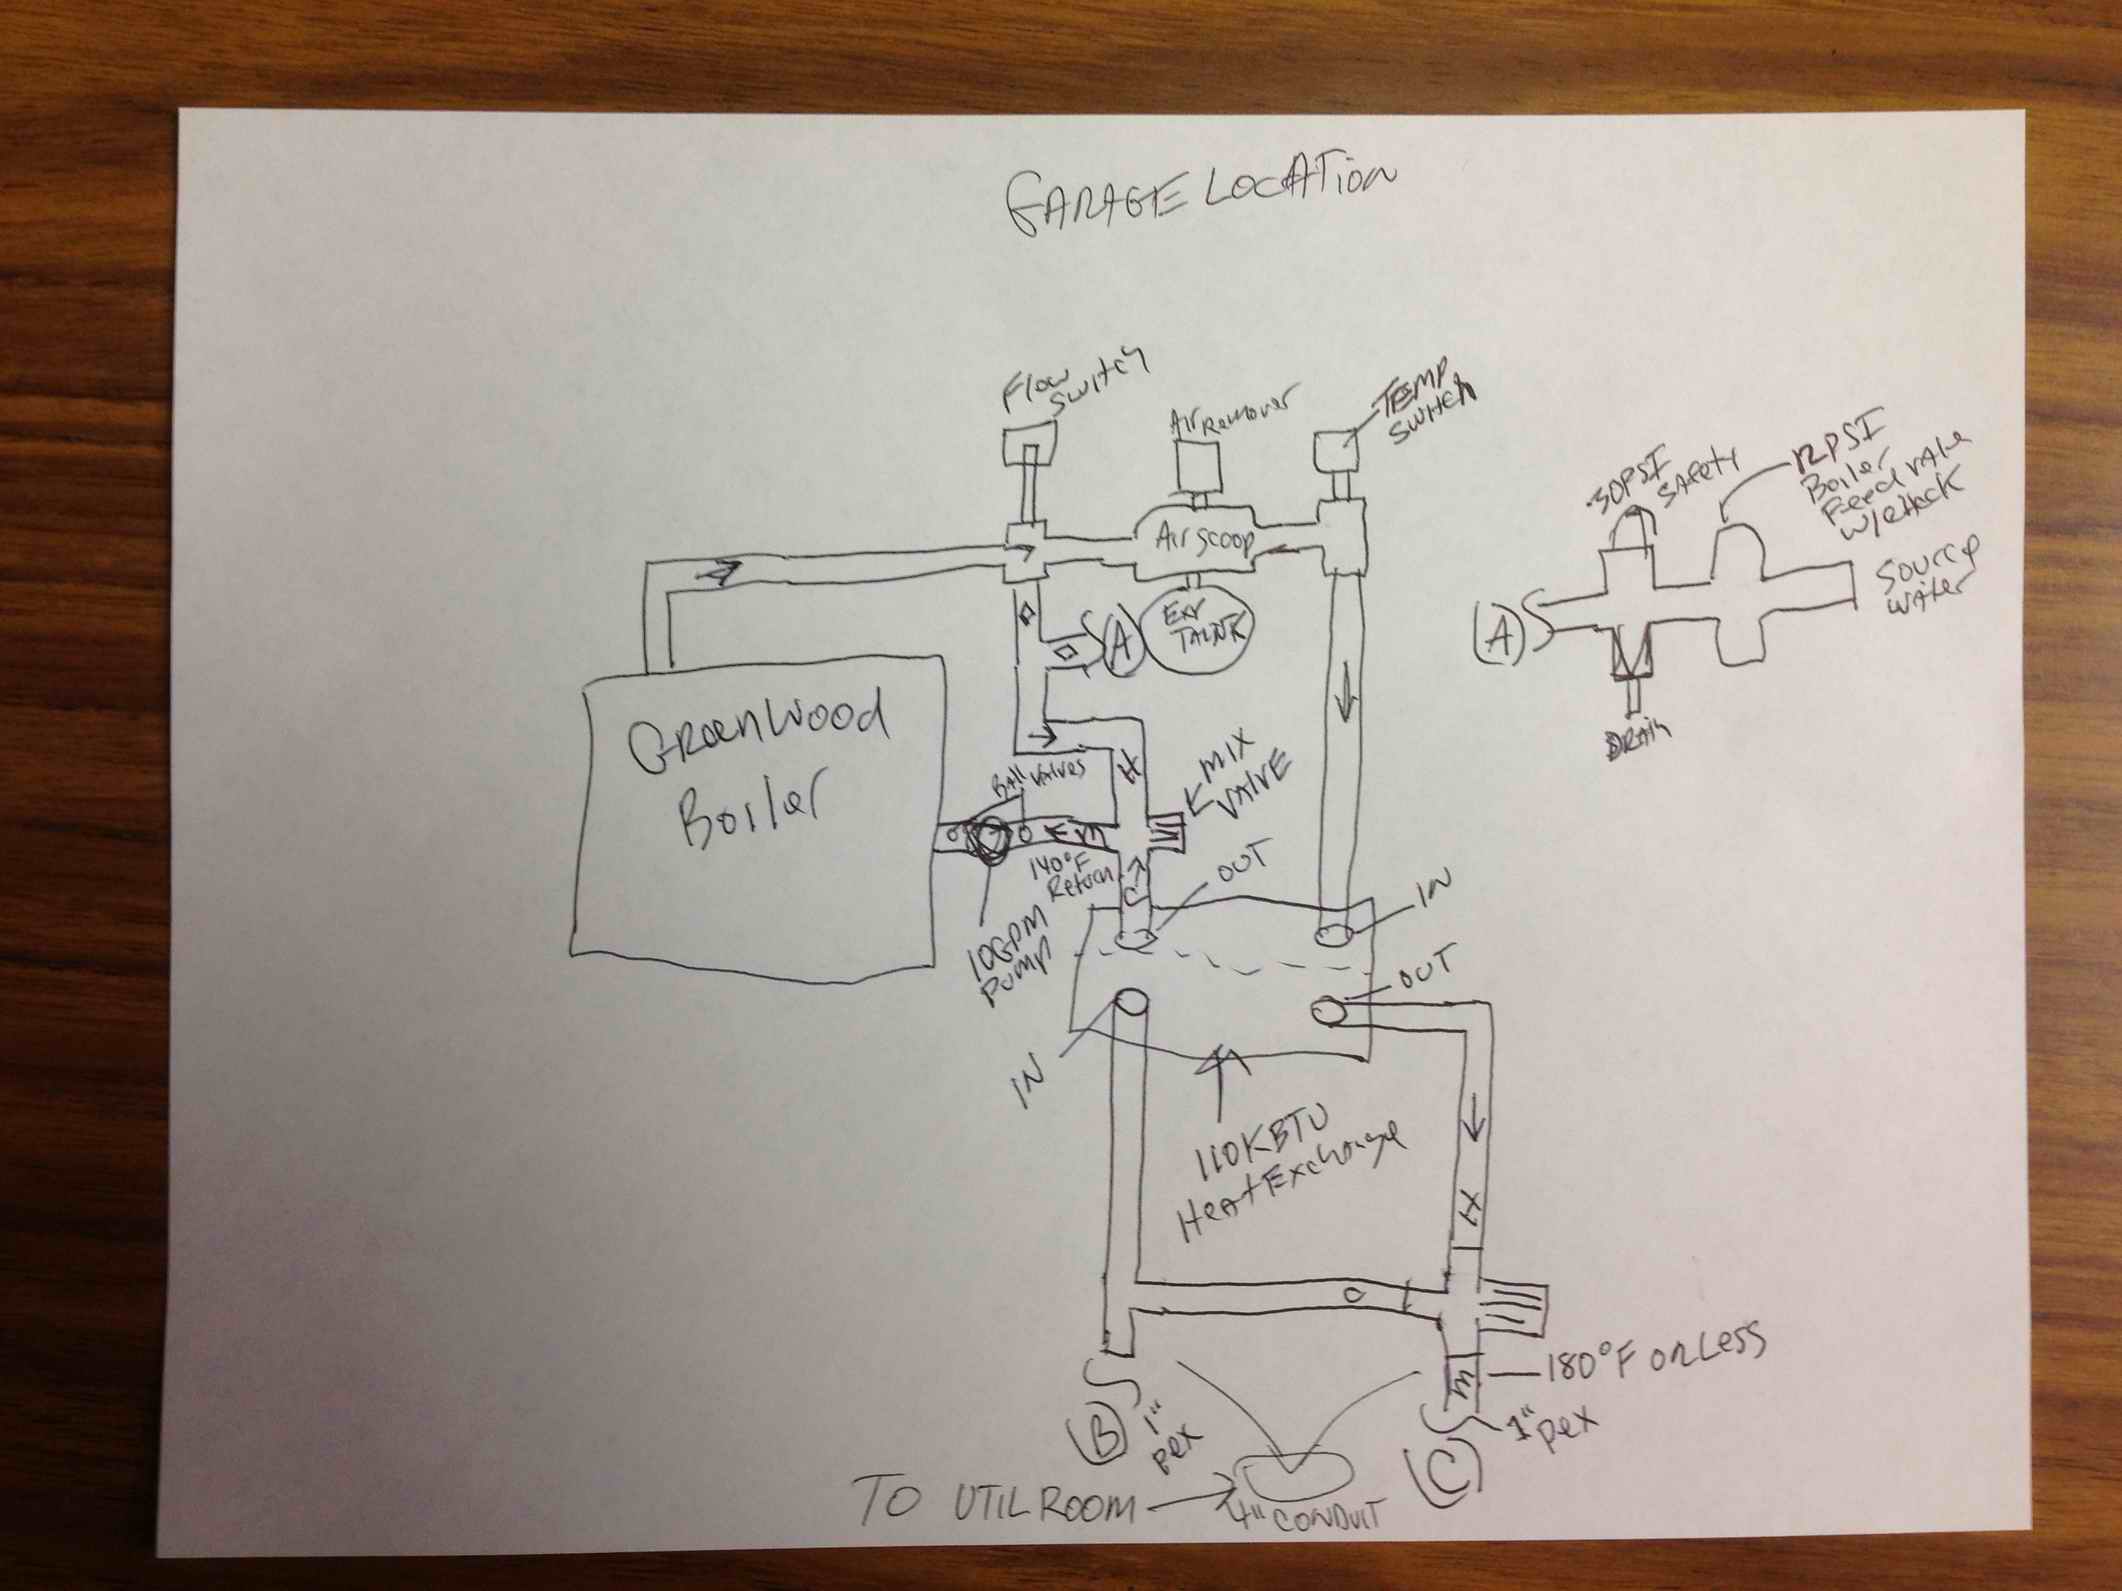 GARAGE LOCATION
Flow
Switch
Air
Remover
TEMP
Switch
30PSI
Safety
12PSI
Boiler
Feed valve
w/check
Source
water
Air scoop
A
A
TANK
Drain
GreenWood
Boiler
Ball Valves
H
MIX
VALVE
M
140°F
Return
C
OUT
IN
10GPM
Pump
OUT
IN
110KBTU
Heat Exchange
H
C
180°F or Less
M
1"
pex
B
1"
pex
C
TO UTIL ROOM
4" CONDUIT